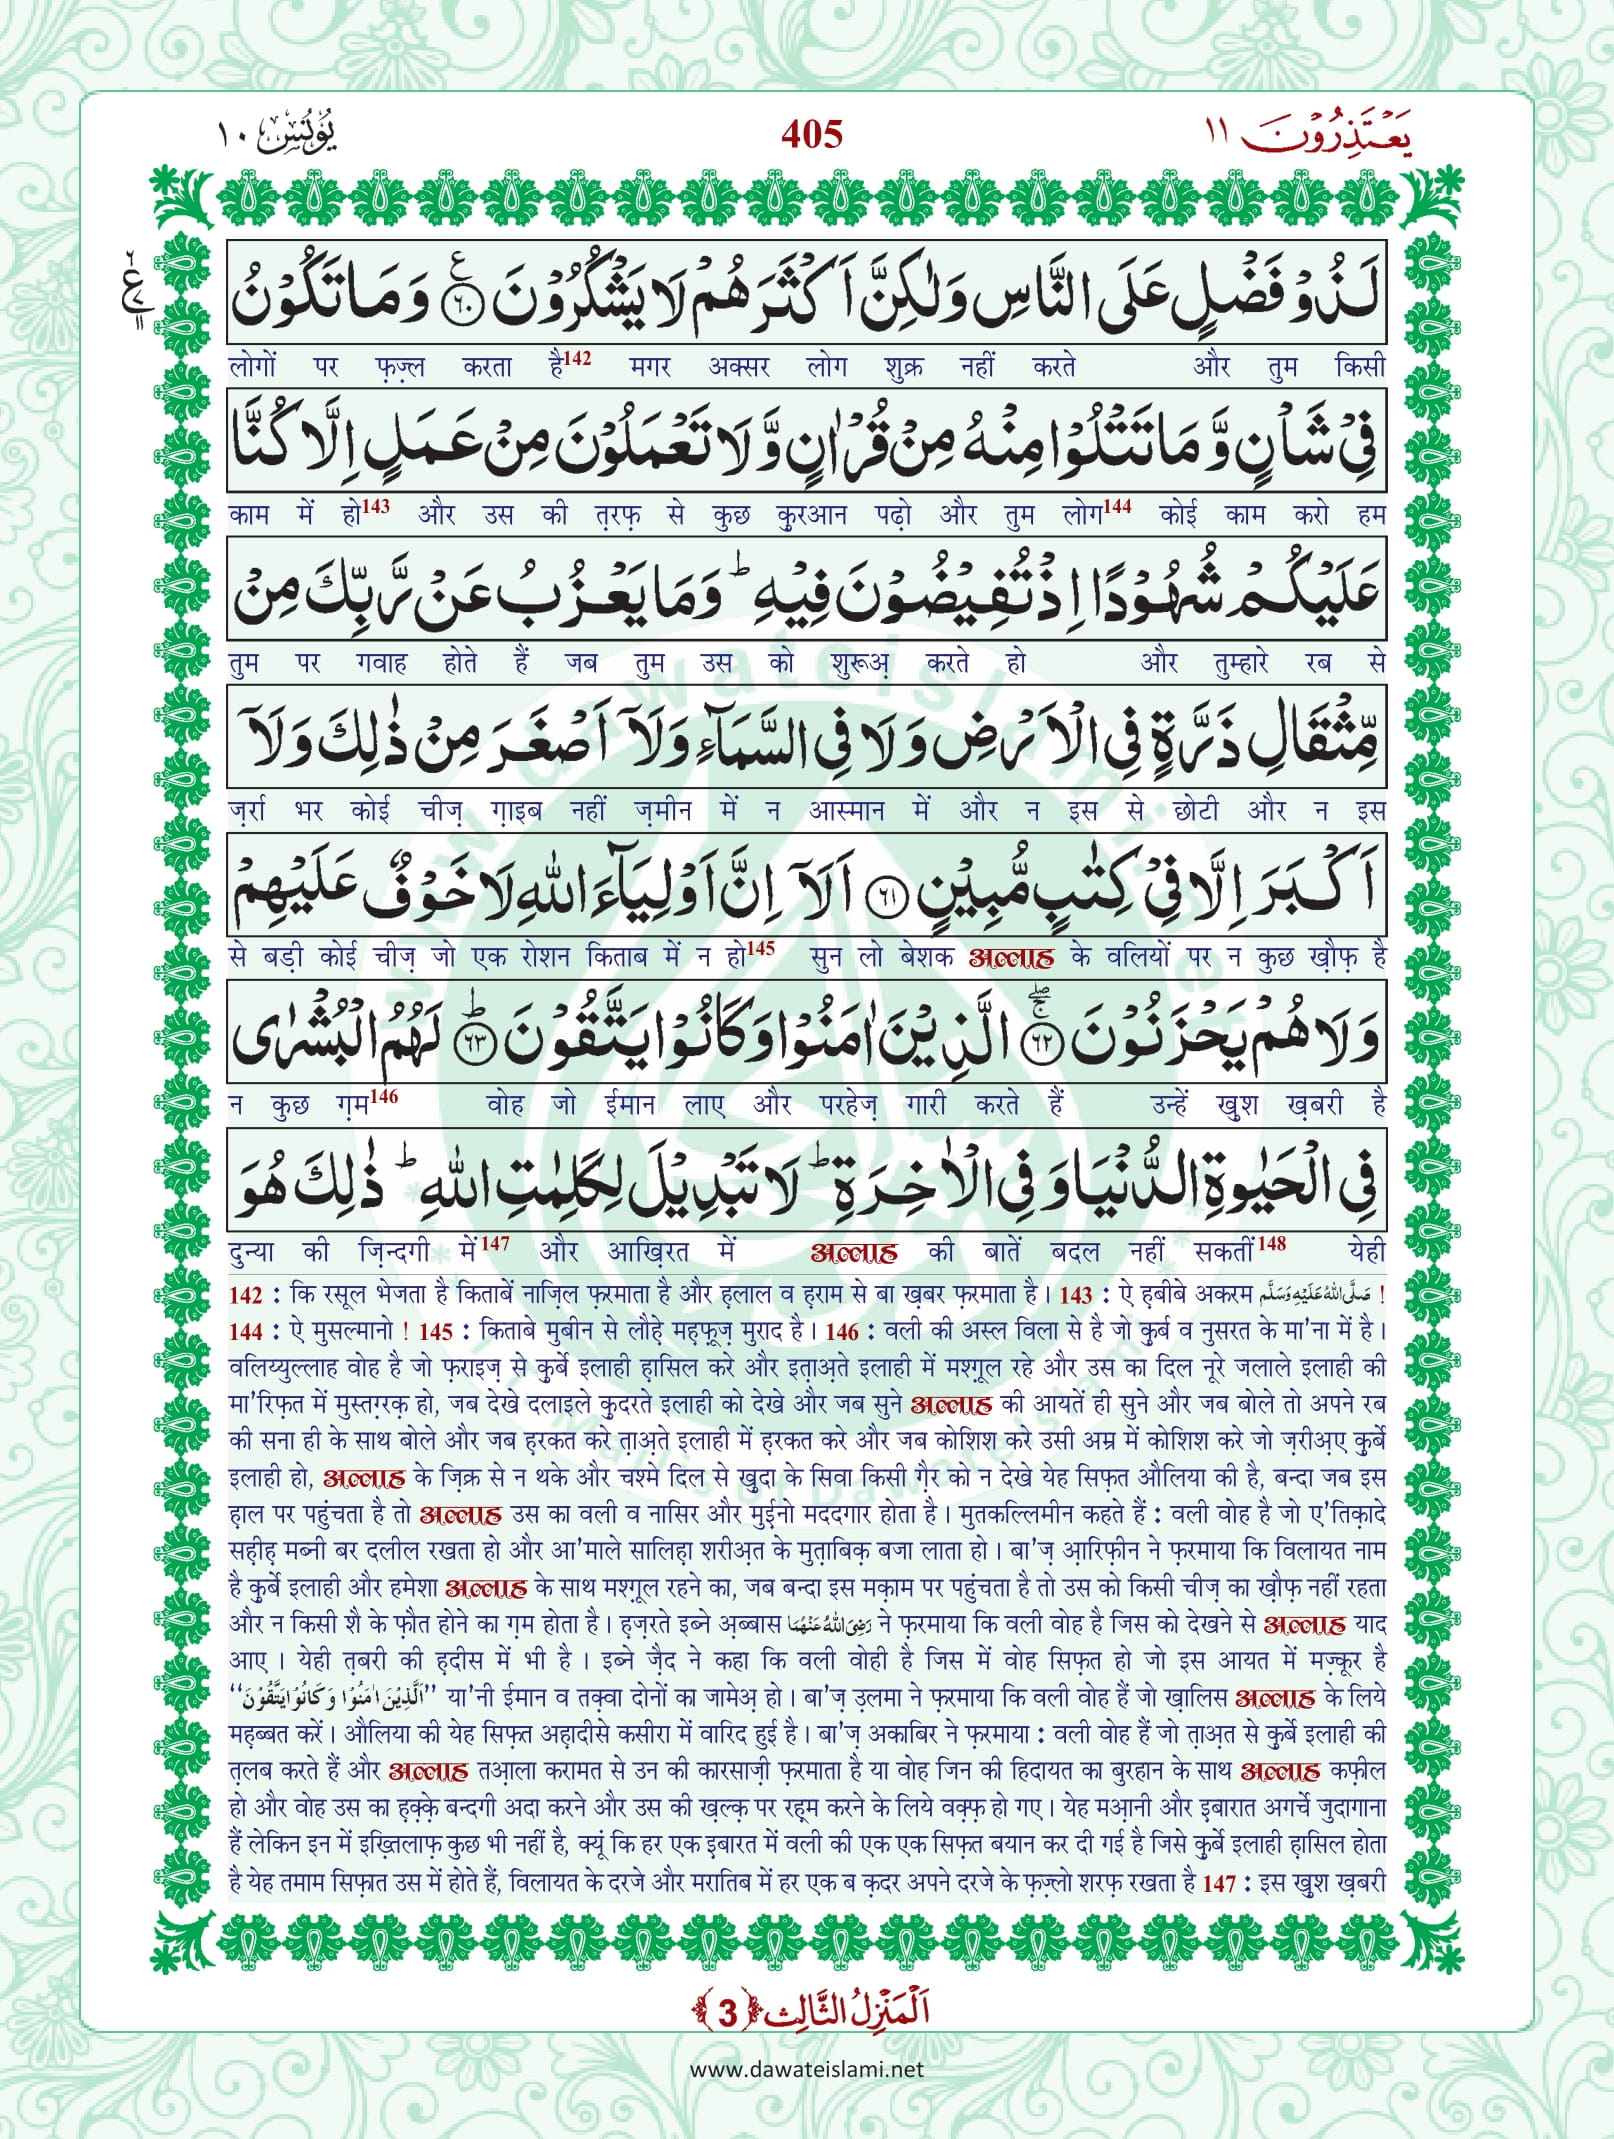 يَعْتَذِرُوْنَ ١١
405
يُوْنُس ١٠
لَذُوْ فَضْلٍ عَلَى النَّاسِ وَلٰكِنَّ اَكْثَرَهُمْ لَا یَشْكُرُوْنَ ۠ع ﴿۶۰﴾ وَ مَا تَكُوْنُ
लोगों पर फ़ज़्ल करता है142 मगर अक्सर लोग शुक्र नहीं करते और तुम किसी
فِیْ شَاْنٍ وَّ مَا تَتْلُوْا مِنْهُ مِنْ قُرْاٰنٍ وَّ لَا تَعْمَلُوْنَ مِنْ عَمَلٍ اِلَّا كُنَّا
काम में हो143 और उस की त़रफ़ से कुछ क़ुरआन पढ़ो और तुम लोग144 कोई काम करो हम
عَلَیْكُمْ شُهُوْدًا اِذْ تُفِیْضُوْنَ فِیْهِ ؕ وَ مَا یَعْزُبُ عَنْ رَّبِّكَ مِنْ
तुम पर गवाह होते हैं जब तुम उस को शुरूअ़ करते हो और तुम्हारे रब से
مِّثْقَالِ ذَرَّةٍ فِی الْاَرْضِ وَ لَا فِی السَّمَآءِ وَ لَاۤ اَصْغَرَ مِنْ ذٰلِكَ وَ لَاۤ
ज़र्रा भर कोई चीज़ ग़ाइब नहीं ज़मीन में न आस्मान में और न इस से छोटी और न इस
اَكْبَرَ اِلَّا فِیْ كِتٰبٍ مُّبِیْنٍ ﴿۶۱﴾ اَلَاۤ اِنَّ اَوْلِیَآءَ اللّٰهِ لَا خَوْفٌ عَلَیْهِمْ
से बड़ी कोई चीज़ जो एक रोशन किताब में न हो145 सुन लो बेशक अल्लाह के वलियों पर न कुछ ख़ौफ़ है
وَ لَا هُمْ یَحْزَنُوْنَ ۚۖ ﴿۶۲﴾ الَّذِیْنَ اٰمَنُوْا وَ كَانُوْا یَتَّقُوْنَ ؕ ﴿۶۳﴾ لَهُمُ الْبُشْرٰى
न कुछ ग़म146 वोह जो ईमान लाए और परहेज़ गारी करते हैं उन्हें खुश ख़बरी है
فِی الْحَیٰوةِ الدُّنْیَا وَ فِی الْاٰخِرَةِ ؕ لَا تَبْدِیْلَ لِكَلِمٰتِ اللّٰهِ ؕ ذٰلِكَ هُوَ
दुन्या की ज़िन्दगी में147 और आख़िरत में अल्लाह की बातें बदल नहीं सकतीं148 येही
142 : कि रसूल भेजता है किताबें नाज़िल फ़रमाता है और ह़लाल व ह़राम से बा ख़बर फ़रमाता है। 143 : ऐ ह़बीबे अकरम صَلَّى اللهُ عَلَيْهِ وَسَلَّم !
144 : ऐ मुसल्मानो ! 145 : किताबे मुबीन से लौह़े मह़फ़ूज़ मुराद है। 146 : वली की अस्ल विला से है जो क़ुर्ब व नुसरत के मा'ना में है।
वलिय्युल्लाह वोह है जो फ़राइज़ से क़ुर्बे इलाही ह़ासिल करे और इत़ाअ़ते इलाही में मश्ग़ूल रहे और उस का दिल नूरे जलाले इलाही की
मा'रिफ़त में मुस्तग़रक़ हो, जब देखे दलाइले क़ुदरते इलाही को देखे और जब सुने अल्लाह की आयतें ही सुने और जब बोले तो अपने रब
की सना ही के साथ बोले और जब ह़रकत करे त़ाअ़ते इलाही में ह़रकत करे और जब कोशिश करे उसी अम्र में कोशिश करे जो ज़रीअ़ए क़ुर्बे
इलाही हो, अल्लाह के ज़िक्र से न थके और चश्मे दिल से खुदा के सिवा किसी ग़ैर को न देखे येह सिफ़त औलिया की है, बन्दा जब इस
ह़ाल पर पहुंचता है तो अल्लाह उस का वली व नासिर और मुईनो मददगार होता है। मुतकल्लिमीन कहते हैं : वली वोह है जो ए'तिक़ादे
सह़ीह़ मब्नी बर दलील रखता हो और आ'माले सालिह़ा शरीअ़त के मुत़ाबिक़ बजा लाता हो। बा'ज़ आ़रिफ़ीन ने फ़रमाया कि विलायत नाम
है क़ुर्बे इलाही और हमेशा अल्लाह के साथ मश्ग़ूल रहने का, जब बन्दा इस मक़ाम पर पहुंचता है तो उस को किसी चीज़ का ख़ौफ़ नहीं रहता
और न किसी शै के फ़ौत होने का ग़म होता है। ह़ज़रते इब्ने अ़ब्बास رَضِیَ اللهُ عَنْهُمَا ने फ़रमाया कि वली वोह है जिस को देखने से अल्लाह याद
आए। येही त़बरी की ह़दीस में भी है। इब्ने ज़ैद ने कहा कि वली वोही है जिस में वोह सिफ़त हो जो इस आयत में मज़्कूर है
"اَلَّذِيْنَ اٰمَنُوْا وَ كَانُوْا يَتَّقُوْنَ" या'नी ईमान व तक़्वा दोनों का जामेअ़ हो। बा'ज़ उ़लमा ने फ़रमाया कि वली वोह हैं जो ख़ालिस अल्लाह के लिये
मह़ब्बत करें। औलिया की येह सिफ़त अह़ादीसे कसीरा में वारिद हुई है। बा'ज़ अकाबिर ने फ़रमाया : वली वोह हैं जो त़ाअ़त से क़ुर्बे इलाही की
त़लब करते हैं और अल्लाह तआ़ला करामत से उन की कारसाज़ी फ़रमाता है या वोह जिन की हिदायत का बुरहान के साथ अल्लाह कफ़ील
हो और वोह उस का ह़क़्क़े बन्दगी अदा करने और उस की ख़ल्क़ पर रह़्म करने के लिये वक़्फ़ हो गए। येह मआ़नी और इ़बारात अगर्चे जुदागाना
हैं लेकिन इन में इख़्तिलाफ़ कुछ भी नहीं है, क्यूं कि हर एक इ़बारत में वली की एक एक सिफ़त बयान कर दी गई है जिसे क़ुर्बे इलाही ह़ासिल होता
है येह तमाम सिफ़ात उस में होते हैं, विलायत के दरजे और मरातिब में हर एक ब क़दर अपने दरजे के फ़ज़्लो शरफ़ रखता है 147 : इस खुश ख़बरी
اَلْمَنْزِلُ الثَّالِث ﴿3﴾
www.dawateislami.net